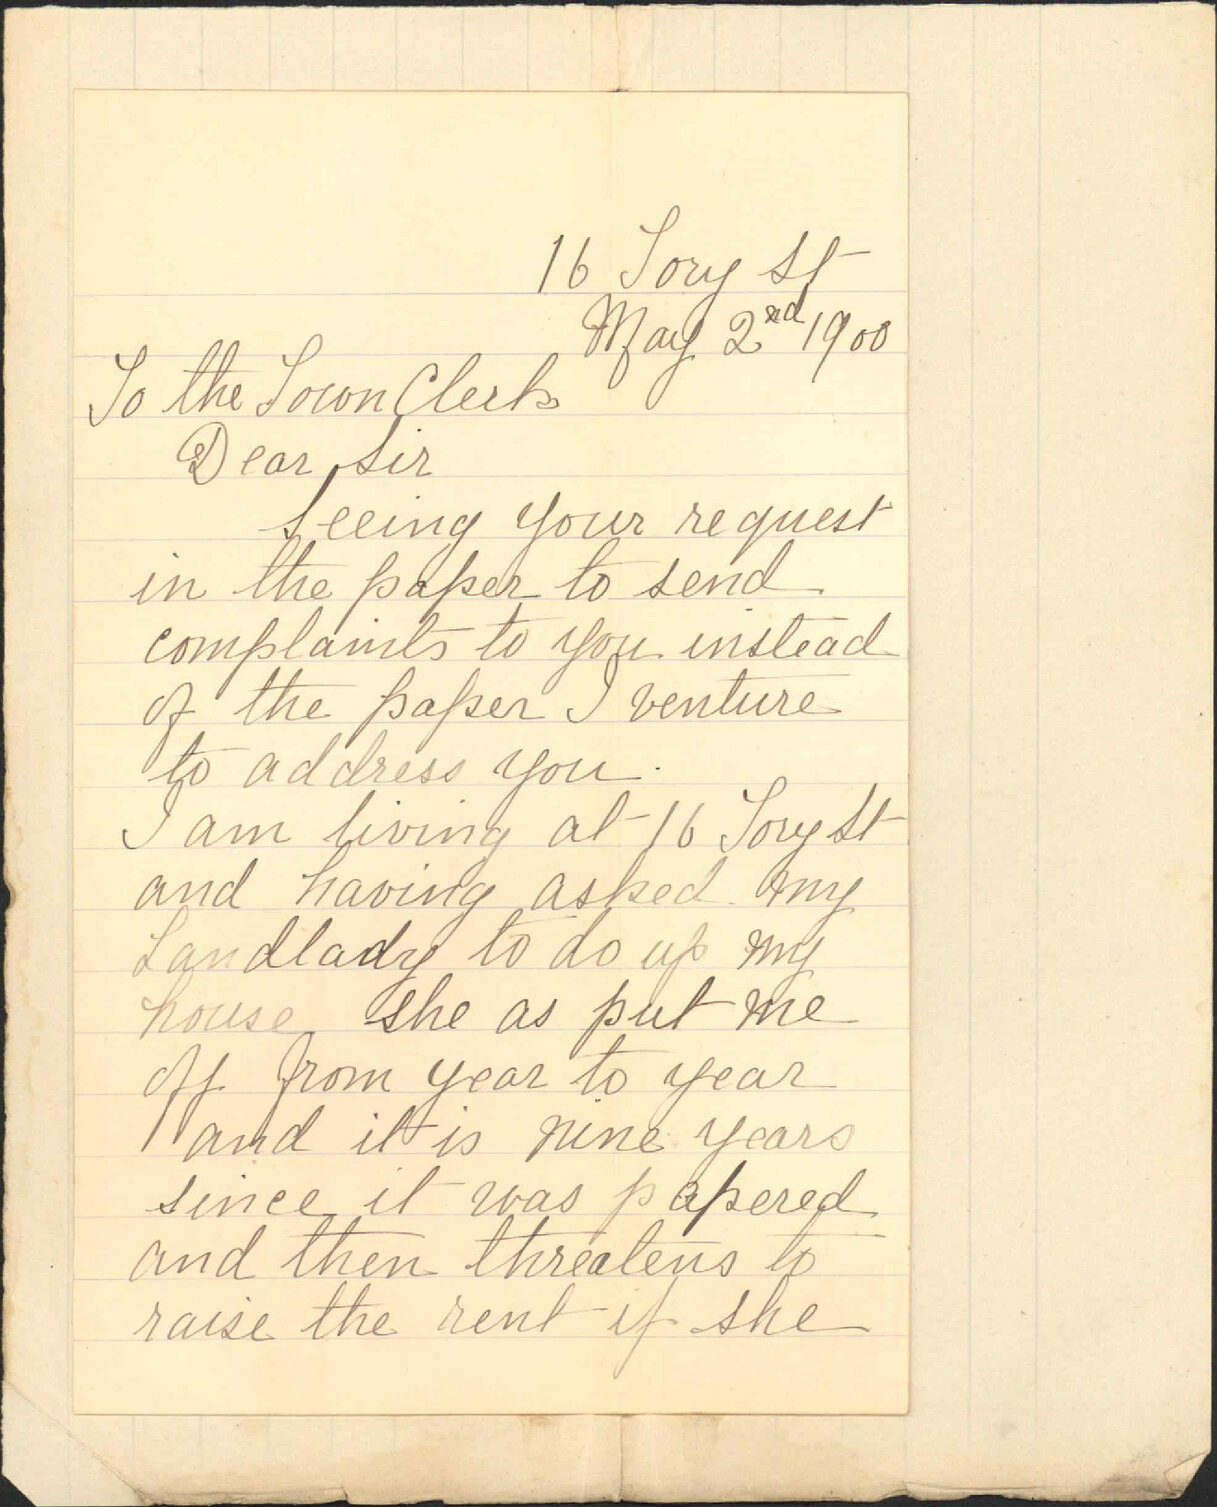 16 Tory St
May 2nd 1900
To the Town Clerk
Dear Sir
Seeing your request
in the paper to send
complaints to you instead
of the paper I venture
to address you.
I am living at 16 Tory St
and having asked my
Landlady to do up my
house she as put me
off from year to year
and it is nine years
since it was papered
and then threatens to
raise the rent if she